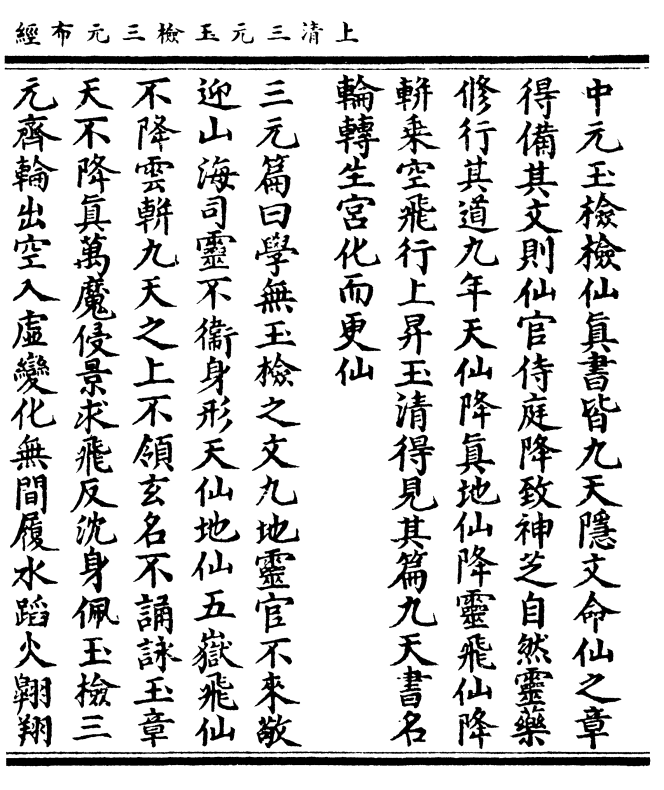 上清三元玉檢三元布經
中元玉檢檢仙眞書皆九天隱文命仙之章
得備其文則仙官侍庭降致神芝自然靈藥
修行其道九年天仙降眞地仙降靈飛仙降
軿乘空飛行上昇玉清得見其篇九天書名
輪轉生宮化而更仙
三元篇曰學無玉檢之文九地靈官不來敬
迎山海司靈不衞身形天仙地仙五嶽飛仙
不降雲軿九天之上不領玄名不誦詠玉章
天不降眞萬魔侵景求飛反沈身佩玉檢三
元齊輪出空入虛變化無間履水蹈火翺翔